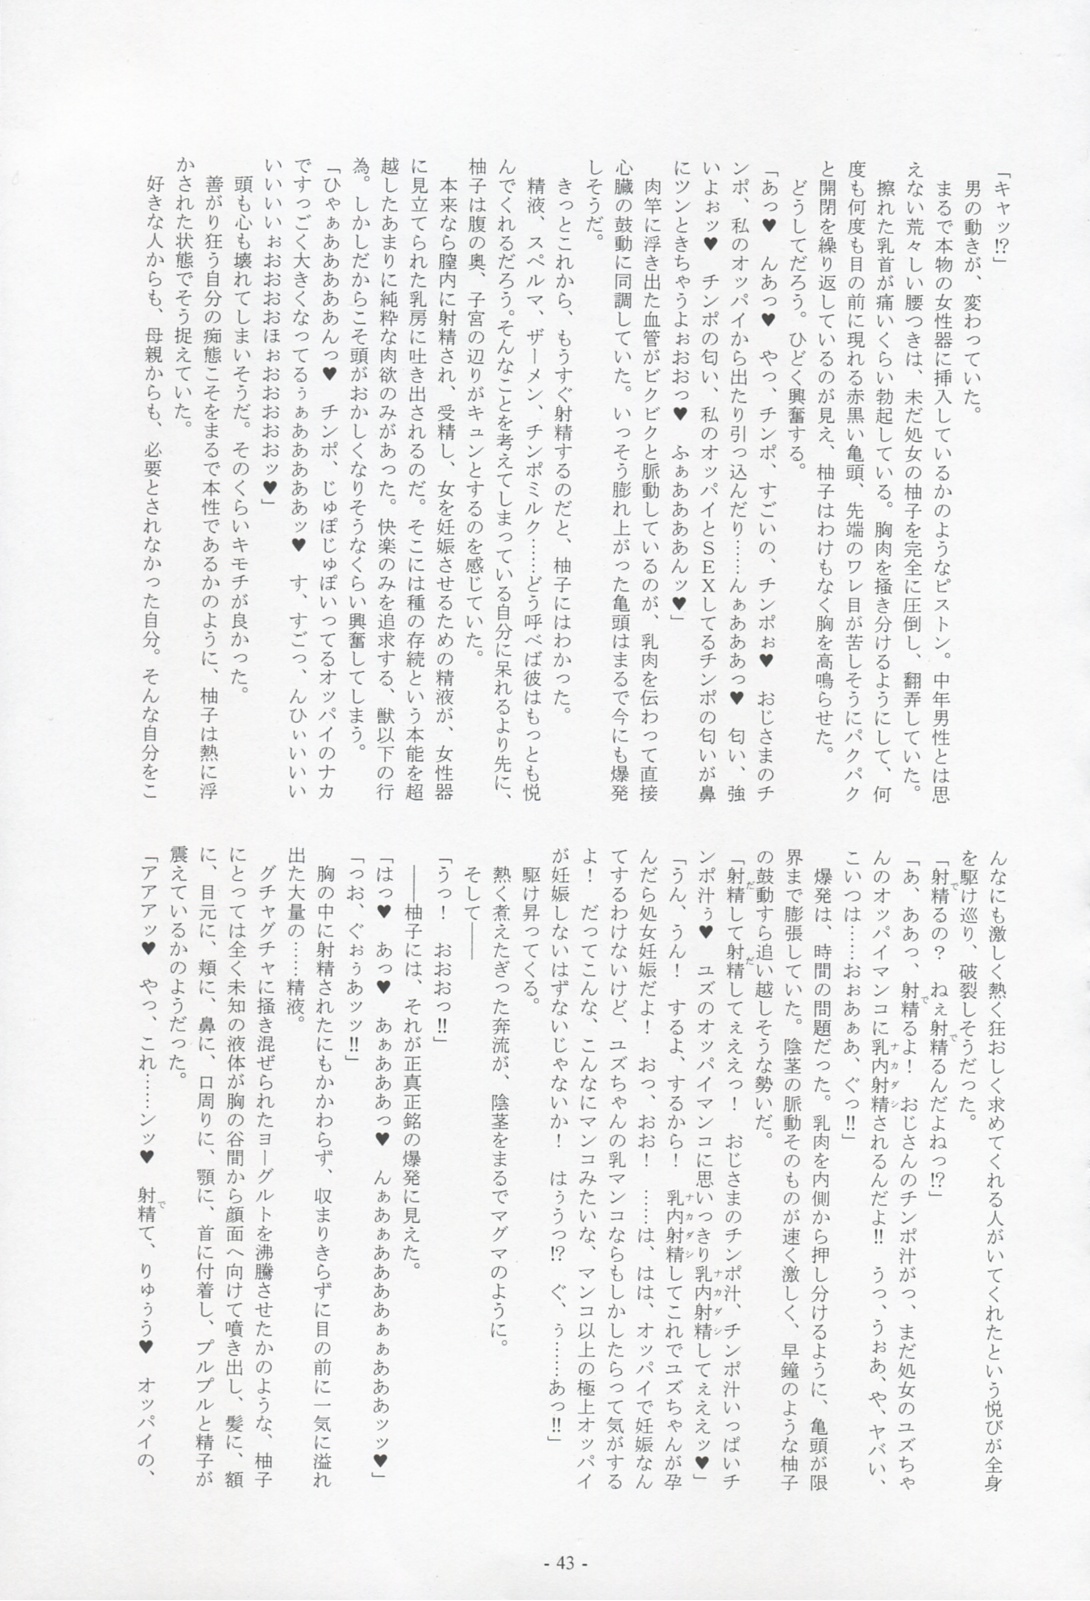 「キャッ!?」
男の動きが、変わっていた。
まるで本物の女性器に挿入しているかのようなピストン。中年男性とは思
えない荒々しい腰つきは、未だ処女の柚子を完全に圧倒し、翻弄していた。
擦れた乳首が痛いくらい勃起している。胸肉を掻き分けるようにして、何
度も何度も目の前に現れる赤黒い亀頭、先端のワレ目が苦しそうにパクパク
と開閉を繰り返しているのが見え、柚子はわけもなく胸を高鳴らせた。
どうしてだろう。ひどく興奮する。
「あっ♥　んあっ♥　やっ、チンポ、すごいの、チンポぉ♥　おじさまのチ
ンポ、私のオッパイから出たり引っ込んだり……んぁあああっ♥　匂い、強
いよぉッ♥　チンポの匂い、私のオッパイとＳＥＸしてるチンポの匂いが鼻
にツンときちゃうよぉおおっ♥　ふぁああああんッ♥」
肉竿に浮き出た血管がビクビクと脈動しているのが、乳肉を伝わって直接
心臓の鼓動に同調していた。いっそう膨れ上がった亀頭はまるで今にも爆発
しそうだ。
きっとこれから、もうすぐ射精するのだと、柚子にはわかった。
精液、スペルマ、ザーメン、チンポミルク……どう呼べば彼はもっとも悦
んでくれるだろう。そんなことを考えてしまっている自分に呆れるより先に、
柚子は腹の奥、子宮の辺りがキュンとするのを感じていた。
本来なら膣内に射精され、受精し、女を妊娠させるための精液が、女性器
に見立てられた乳房に吐き出されるのだ。そこには種の存続という本能を超
越したあまりに純粋な肉欲のみがあった。快楽のみを追求する、獣以下の行
為。しかしだからこそ頭がおかしくなりそうなくらい興奮してしまう。
「ひゃぁああああんっ♥　チンポ、じゅぽじゅぽいってるオッパイのナカ
ですっごく大きくなってるぅぁああああッ♥　す、すごっ、んひぃいいい
いいいいぉおおおおほぉおおおおおッ♥」
頭も心も壊れてしまいそうだ。そのくらいキモチが良かった。
善がり狂う自分の痴態こそをまるで本性であるかのように、柚子は熱に浮
かされた状態でそう捉えていた。
好きな人からも、母親からも、必要とされなかった自分。そんな自分をこ
んなにも激しく熱く狂おしく求めてくれる人がいてくれたという悦びが全身
を駆け巡り、破裂しそうだった。
「射精るの？　ねぇ射精るんだよねっ!?」
「あ、ああっ、射精るよ！　おじさんのチンポ汁がっ、まだ処女のユズちゃ
んのオッパイマンコに乳内射精されるんだよ!!　うっ、うぉあ、や、ヤバい、
こいつは……おぉあぁあ、ぐっ!!」
爆発は、時間の問題だった。乳肉を内側から押し分けるように、亀頭が限
界まで膨張していた。陰茎の脈動そのものが速く激しく、早鐘のような柚子
の鼓動すら追い越しそうな勢いだ。
「射精して射精してぇええっ！　おじさまのチンポ汁、チンポ汁いっぱいチ
ンポ汁ぅ♥　ユズのオッパイマンコに思いっきり乳内射精してぇええッ♥」
「うん、うん！　するよ、するから！　乳内射精してこれでユズちゃんが孕
んだら処女妊娠だよ！　おっ、おお！　……は、はは、オッパイで妊娠なん
てするわけないけど、ユズちゃんの乳マンコならもしかしたらって気がする
よ！　だってこんな、こんなにマンコみたいな、マンコ以上の極上オッパイ
が妊娠しないはずないじゃないか！　はぅうっ!?　ぐ、ぅ……あっ!!」
駆け昇ってくる。
熱く煮えたぎった奔流が、陰茎をまるでマグマのように。
そして――
「うっ！　おおおっ!!」
――柚子には、それが正真正銘の爆発に見えた。
「はっ♥　あっ♥　あぁあああっ♥　んぁあぁああああぁぁあああッッ♥」
「っお、ぐぉぅあッッ!!」
胸の中に射精されたにもかかわらず、収まりきらずに目の前に一気に溢れ
出た大量の……精液。
グチャグチャに掻き混ぜられたヨーグルトを沸騰させたかのような、柚子
にとっては全く未知の液体が胸の谷間から顔面へ向けて噴き出し、髪に、額
に、目元に、頬に、鼻に、口周りに、顎に、首に付着し、プルプルと精子が
震えているかのようだった。
「アアアッ♥　やっ、これ……ンッ♥　射精て、りゅぅう♥　オッパイの、
- 43 -